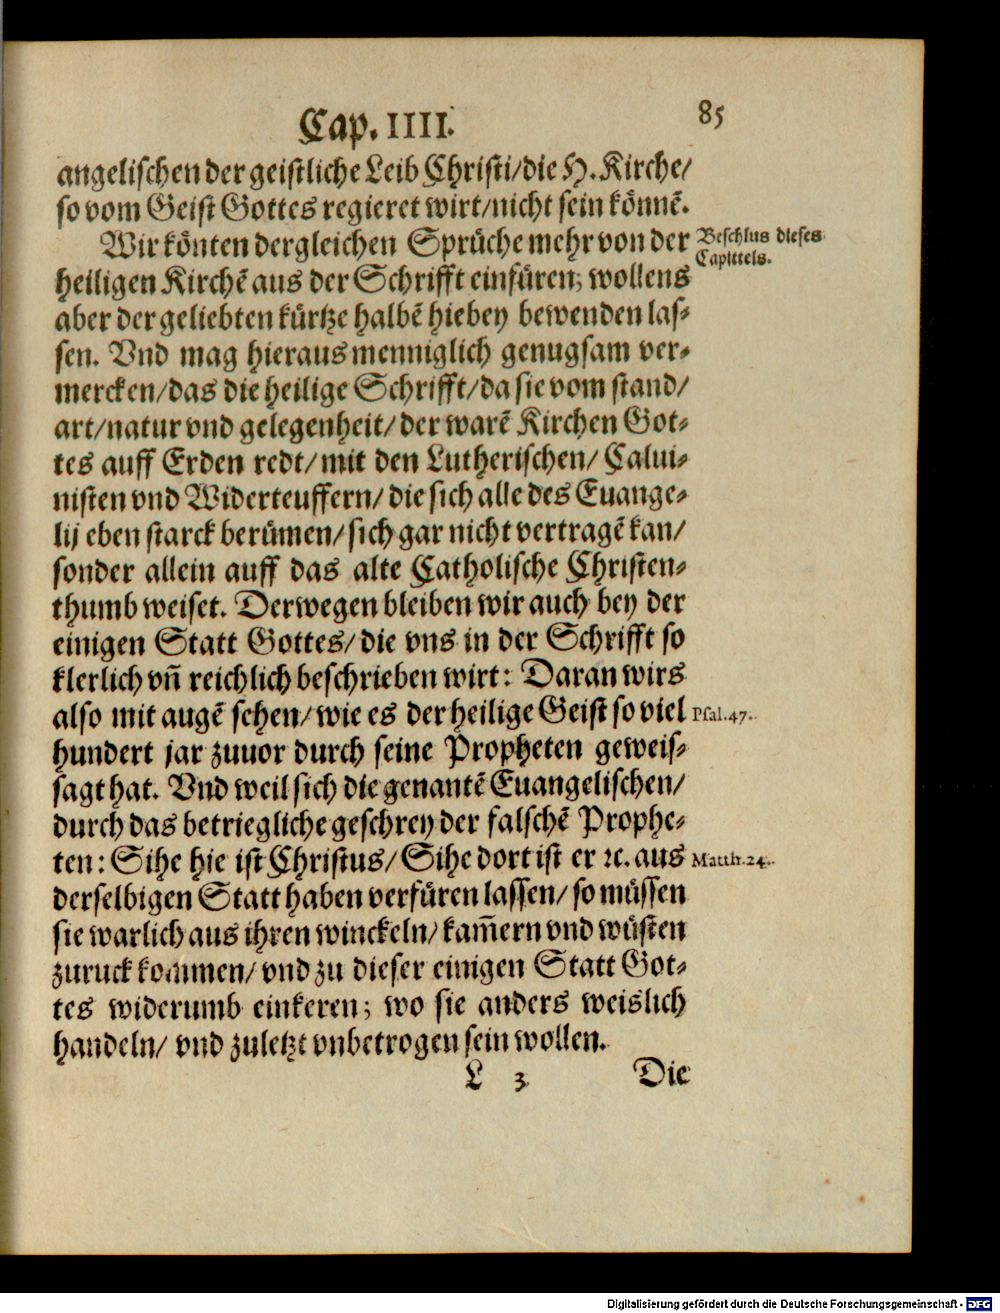 Cap. IIII. 85
angelischen der geistliche Leib Christi/die H. Kirche/
so vom Geist Gottes regieret wirt/nicht sein könnē.
Wir könten dergleichen Sprüche mehr von der
Beschlus dieses
Capittels.
heiligen Kirchē aus der Schrifft einfüren; wollens
aber der geliebten kürtze halbē hiebey bewenden las-
sen. Vnd mag hieraus menniglich genugsam ver-
mercken/das die heilige Schrifft/da sie vom stand/
art/natur vnd gelegenheit/der warē Kirchen Got-
tes auff Erden redt/mit den Lutherischen/Calui-
nisten vnd Widerteuffern/die sich alle des Euange-
lij eben starck berümen/sich gar nicht vertragē kan/
sonder allein auff das alte Catholische Christen-
thumb weiset. Derwegen bleiben wir auch bey der
einigen Statt Gottes/die vns in der Schrifft so
klerlich vn̄ reichlich beschrieben wirt: Daran wirs
also mit augē sehen/wie es der heilige Geist so viel
Psal.47.
hundert jar zuuor durch seine Propheten geweis-
sagt hat. Vnd weil sich die genantē Euangelischen/
durch das betriegliche geschrey der falschē Prophe-
ten: Sihe hie ist Christus/Sihe dort ist er ꝛc. aus
Matth.24.
derselbigen Statt haben verfüren lassen/so müssen
sie warlich aus ihren winckeln/kam̄ern vnd wüsten
zuruck kommen/vnd zu dieser einigen Statt Got-
tes widerumb einkeren; wo sie anders weislich
handeln/ vnd zuletzt vnbetrogen sein wollen.
L 3 Die
Digitalisierung gefördert durch die Deutsche Forschungsgemeinschaft - DFG